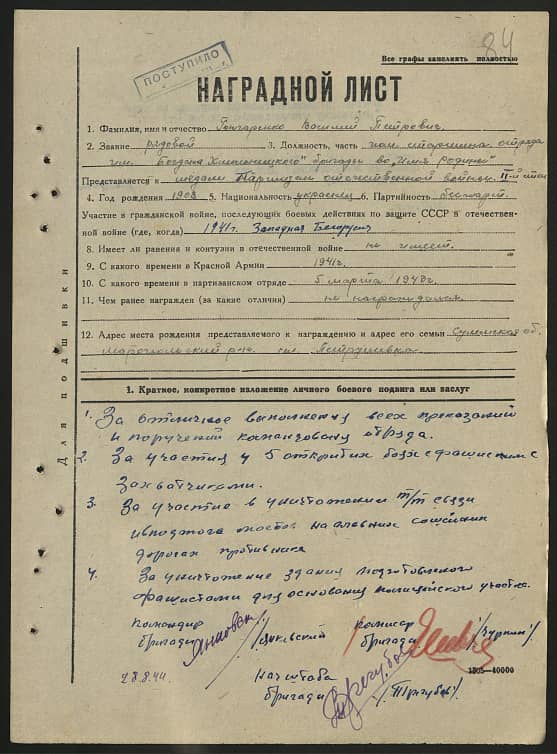 84
Все графы заполнять полностью
ПОСТУПИЛО
НАГРАДНОЙ ЛИСТ
1. Фамилия, имя и отчество Гончаренко Василий Петрович.
2. Звание рядовой 3. Должность, часть пом. старшина отряда
им. Богдана Хмельницкого" бригады во "Имя Родины"
Представляется к медали Партизан отечественной войны II-й степ
4. Год рождения 1908 5. Национальность украинец 6. Партийность беспарт.
Участие в гражданской войне, последующих боевых действиях по защите СССР в отечествен-
ной войне (где, когда) 1941г. Западная Белорусия
8. Имеет ли ранения и контузии в отечественной войне не имеет.
9. С какого времени в Красной Армии 1941г.
10. С какого времени в партизанском отряде 5 марта
11. Чем ранее награжден (за какие отличия) не награждался
12. Адрес места рождения представляемого к награждению и адрес его семьи Сумская об.
Для подшивки
1. Краткое, конкретное изложение личного боевого подвига или заслуг
1. За отличное выполнения всех приказаний
и поручений командования отряда.
2. За участия у 5 открытих боях с фашискими
Захватчиками.
3. За участие в уничтожении т/т связи
и мостов на
дорогах противника
4. За уничтожение здания подготовленого
фашистами для основания полицейского участка.
Командир Комисар
бригады бригады /Чуркин/
28.8.44. Нач штаба
бригады
1305—10000